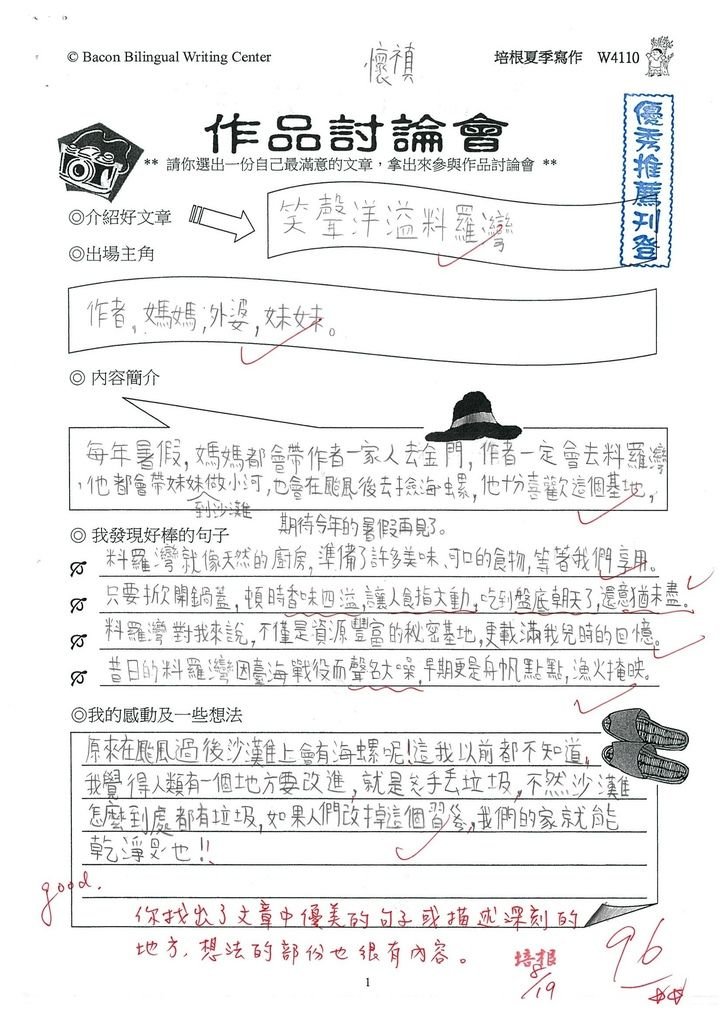 © Bacon Bilingual Writing Center
懷禎
培根夏季寫作 W4110
作品討論會
** 請你選出一份自己最滿意的文章，拿出來參與作品討論會 **
優秀推薦刊登
◎介紹好文章
笑聲洋溢料羅灣
◎出場主角
作者，媽媽，外婆，妹妹。
◎ 內容簡介
每年暑假，媽媽都會帶作者一家人去金門，作者一定會去料羅灣
，他都會帶妹妹到沙灘做小河，也會在颱風後去撿海螺，他十分喜歡這個基地，
期待今年的暑假再見了。
◎ 我發現好棒的句子
料羅灣就像天然的廚房，準備了許多美味、可口的食物，等著我們享用。
只要掀開鍋蓋，頓時香味四溢，讓人食指大動，吃到盤底朝天了，還意猶未盡。
料羅灣對我來說，不僅是資源豐富的秘密基地，更載滿我兒時的回憶。
昔日的料羅灣因臺海戰役而聲名大噪，早期更是舟帆點點，漁火掩映。
◎我的感動及一些想法
原來在颱風過後沙灘上會有海螺呢！這我以前都不知道，
我覺得人類有一個地方要改進，就是手丟垃圾，不然沙灘
怎麼到處都有垃圾，如果人們改掉這個習後，我們的家就能
乾淨也！！
good.
你找出了文章中優美的句子或描述深刻的
地方，想法的部份也很有內容。
培根
8/19
96
1